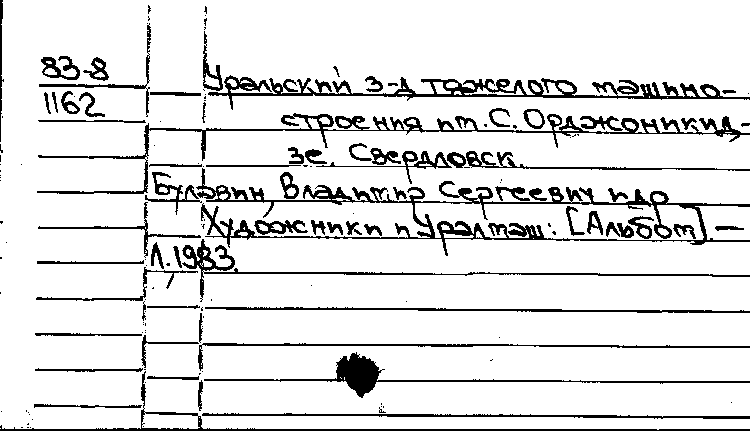 83-8 Уральский з-д тяжелого машино-
1162 строения им. С. Орджоникид-
зе. Свердловск.
Булавин, Владимир Сергеевич и др
Художники и Уралмаш: [Альбом]. —
Л. 1983.